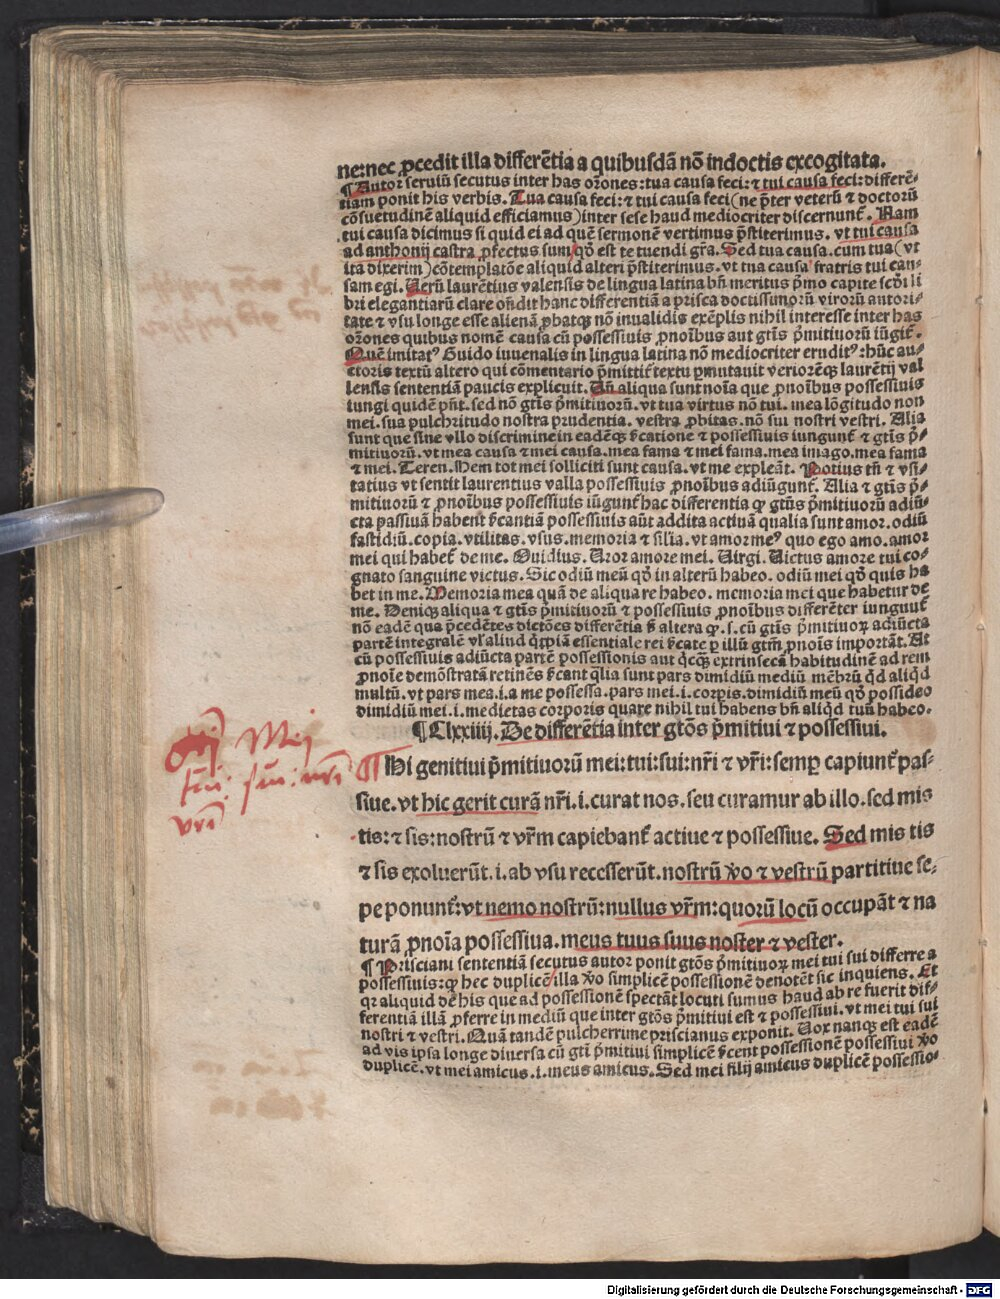 ne:nec ꝓcedit illa differẽtia a quibusdã nõ indoctis excogitata.
¶ Autor seruiũ secutus inter has orões: tua causa feci: ⁊ tui causa feci: differẽ-
tiam ponit his verbis. Tua causa feci: ⁊ tui causa feci (ne p̃ter veterũ ⁊ doctorũ
cõsuetudinẽ aliquid efficiamus) inter sese haud mediocriter discernunt̃. Nam
tui causa dicimus si quid ei ad quẽ sermonẽ vertimus p̃stiterimus. vt tui causa
ad anthonij castra ꝓfectus sum/ qd̃ est te tuendi gr̃a. Sed tua causa. cum tua (vt
ita dixerim) cõtemplatõe aliquid alteri p̃stiterimus. vt tua causa fratris tui cau-
sam egi. Uerũ laurẽtius valensis de lingua latina bñ meritus p̃mo capite scd̃i li
bri elegantiarũ clare oñdit hanc differentiã a prisca doctissimorũ virorũ autori-
tate ⁊ vsu longe esse alienã ꝓbatqꝫ nõ inualidis exẽplis nihil interesse inter has
orões quibus nomẽ causa cũ possessiuis ꝓnoĩbus aut gtĩs p̃mitiuorũ iũgit̃.
Quẽ imitatꝰ Guido iuuenalis in lingua latina nõ mediocriter eruditꝰ: hũc au-
ctoris textũ altero qui cõmentario p̃mittit̃ textu p̃mutauit verioreqꝫ laurẽtij val
lensis sententiã paucis explicuit. Dñ aliqua sunt noĩa que ꝓnoĩbus possessiuis
iungi quidẽ pñt. sed nõ gtĩs p̃mitiuorũ. vt tua virtus nõ tui. mea lõgitudo non
mei. sua pulchritudo nostra prudentia. vestra ꝓbitas. nõ sui nostri vestri. Alia
sunt que sine vllo discrimine in eadẽqꝫ s̃catione ⁊ possessiuis iungunt̃ ⁊ gtĩs p̃-
mitiuorũ. vt mea causa ⁊ mei causa. mea fama ⁊ mei fama. mea imago. mea fama
⁊ mei. Teren. Mem tot mei solliciti sunt causa. vt me expleãt. Potius tñ ⁊ vsi-
tatius vt sentit laurentius valla possessiuis ꝓnoĩbus adiũgunt̃. Alia ⁊ gtĩs p̃-
mitiuorũ ⁊ ꝓnoĩbus possessiuis iũgunt̃ hac differentia qꝫ gtĩs p̃mitiuorũ adiũ-
cta passiuã habent s̃cantiã possessiuis aũt addita actiuã qualia sunt amor. odiũ
fastidiũ. copia. vtilitas. vsus. memoria ⁊ sil̃ia. vt amor meꝰ quo ego amo. amor
mei qui habet̃ de me. Ouidius. Uror amore mei. Uirgi. Uictus amore tui co-
gnato sanguine victus. Sic odiũ meũ qd̃ in alterũ habeo. odiũ mei qd̃ quis ha
bet in me. Memoria mea quã de aliqua re habeo. memoria mei que habetur de
me. Deniqꝫ aliqua ⁊ gtĩs p̃mitiuorũ ⁊ possessiuis ꝓnoĩbus differẽter iungunt̃
nõ eadẽ qua p̃cedẽtes dictões differẽtia s̃ altera qꝫ. s. cũ gtĩs p̃mitiuoꝝ adiũcta
partẽ integralẽ vl̃ aliud qd̃piã essentiale rei s̃cate ꝑ illũ gtm̃ ꝓnoĩs importãt. At
cũ possessiuis adiũcta partẽ possessionis aut qd̃cqꝫ extrinsecã habitudinẽ ad rem
ꝓnoĩe demõstratã retinẽs s̃cant qĩlia sunt pars dimidiũ mediũ mẽbrũ qd̃ aliqd̃
multũ. vt pars mea. i. a me possessa. pars mei. i. corpĩs. dimidiũ meũ qd̃ possideo
dimidiũ mei. i. medietas corporis quare nihil tui habens bñ aliqd̃ tuũ habeo.
¶ Clxxiiij. De differẽtia inter gtõs p̃mitiui ⁊ possessiui.
¶ Hi genitiui p̃mitiuorũ mei: tui: sui: nr̃i ⁊ vr̃i: semꝑ capiunt̃ pas-
siue. vt hic gerit curã nr̃i. i. curat nos. seu curamur ab illo. sed mis
tis: ⁊ sis: nostrũ ⁊ vr̃m capiebant̃ actiue ⁊ possessiue. Sed mis tis
⁊ sis exoluerũt. i. ab vsu recesserũt. nostrũ ꝟo ⁊ vestrũ partitiue se-
pe ponunt̃: vt nemo nostrũ: nullus vr̃m: quorũ locũ occupãt ⁊ na
turã ꝓnoĩa possessiua. meus tuus suus noster ⁊ vester.
¶ Prisciani sententiã secutus autor ponit gtõs p̃mitiuoꝝ mei tui sui differre a
possessiuis: qꝫ hec duplicẽ/ illa ꝟo simplicẽ possessionẽ denotẽt sic inquiens. Et
qꝛ aliquid de his que ad possessionẽ spectãt locuti sumus haud ab re fuerit dif-
ferentiã illã ꝓferre in mediũ que inter gtõs p̃mitiui est ⁊ possessiui. vt mei tui sui
nostri ⁊ vestri. Quã tandẽ pulcherrime priscianus exponit. Uox nanqꝫ est eadẽ
ad vis ipsa longe diuersa cũ gtĩ p̃mitiui simplicẽ s̃cent possessionẽ possessiui ꝟo
duplicẽ. vt mei amicus. i. meus amicus. Sed mei filij amicus duplicẽ possessio-
Mei
sui: nr̃i
vr̃i
Digitalisierung gefördert durch die Deutsche Forschungsgemeinschaft - DFG